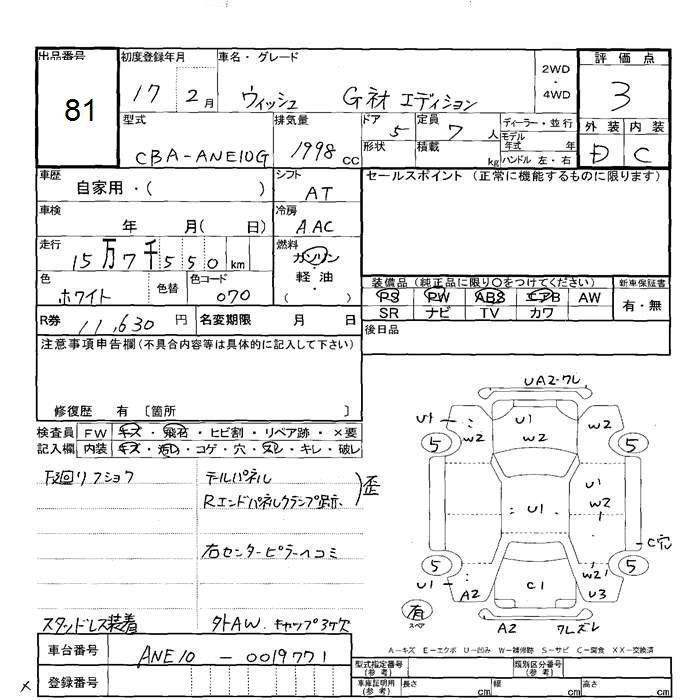 出品番号 初度登録年月 車名・グレード 評価点
81 17 2月 ウィッシュ G衬 エディション 2WD 4WD 3
型式 排気量 ドア 5 定員 7人 ディーラー・並行 外装 内装
CBA-ANE10G 1998cc 形状 積載 kg モデル年式 年 D C
ハンドル 左・右
車歴 自家用・( ) シフト AT セールスポイント (正常に機能するものに限ります)
車検 年 月( 日) 冷房 AAC
走行 15万7千550km 燃料 ガソリン・軽油・( )
色 ホワイト 色替 色コード 070 装備品(純正品に限り○をつけてください) 新車保証書
PS PW ABS エアB AW 有・無
SR ナビ TV カワ
R券 11,630円 名変期限 月 日 後日品
注意事項申告欄(不具合内容等は具体的に記入して下さい)
修復歴 有 〔箇所 〕
検査員 FW キズ・飛石・ヒビ割・リペア跡・×要
記入欄 内装 キズ・汚れ・コゲ・穴・スレ・キレ・破レ
下回リフショク テールパネル
Rエンドパネルクランプ跡示 歪
右センターピラーヘコミ
スタッドレス装着 外AW. キャップ3ケ欠
UA2・ワレ
U1 U1 W2 W2 W2
5 5
U1 U1 W2
C穴
5 5
U1 A2 C1 W2 U3
有 スペア A2 ワレ ズレ
A-キズ E-エクボ U-凹み W-補修跡 S-サビ C-腐食 XX-交換済
車台番号 ANE10-0019771
型式指定番号(参考) 類別区分番号(参考)
× 登録番号 車庫証明用(参考) 長さ cm 幅 cm 高さ cm